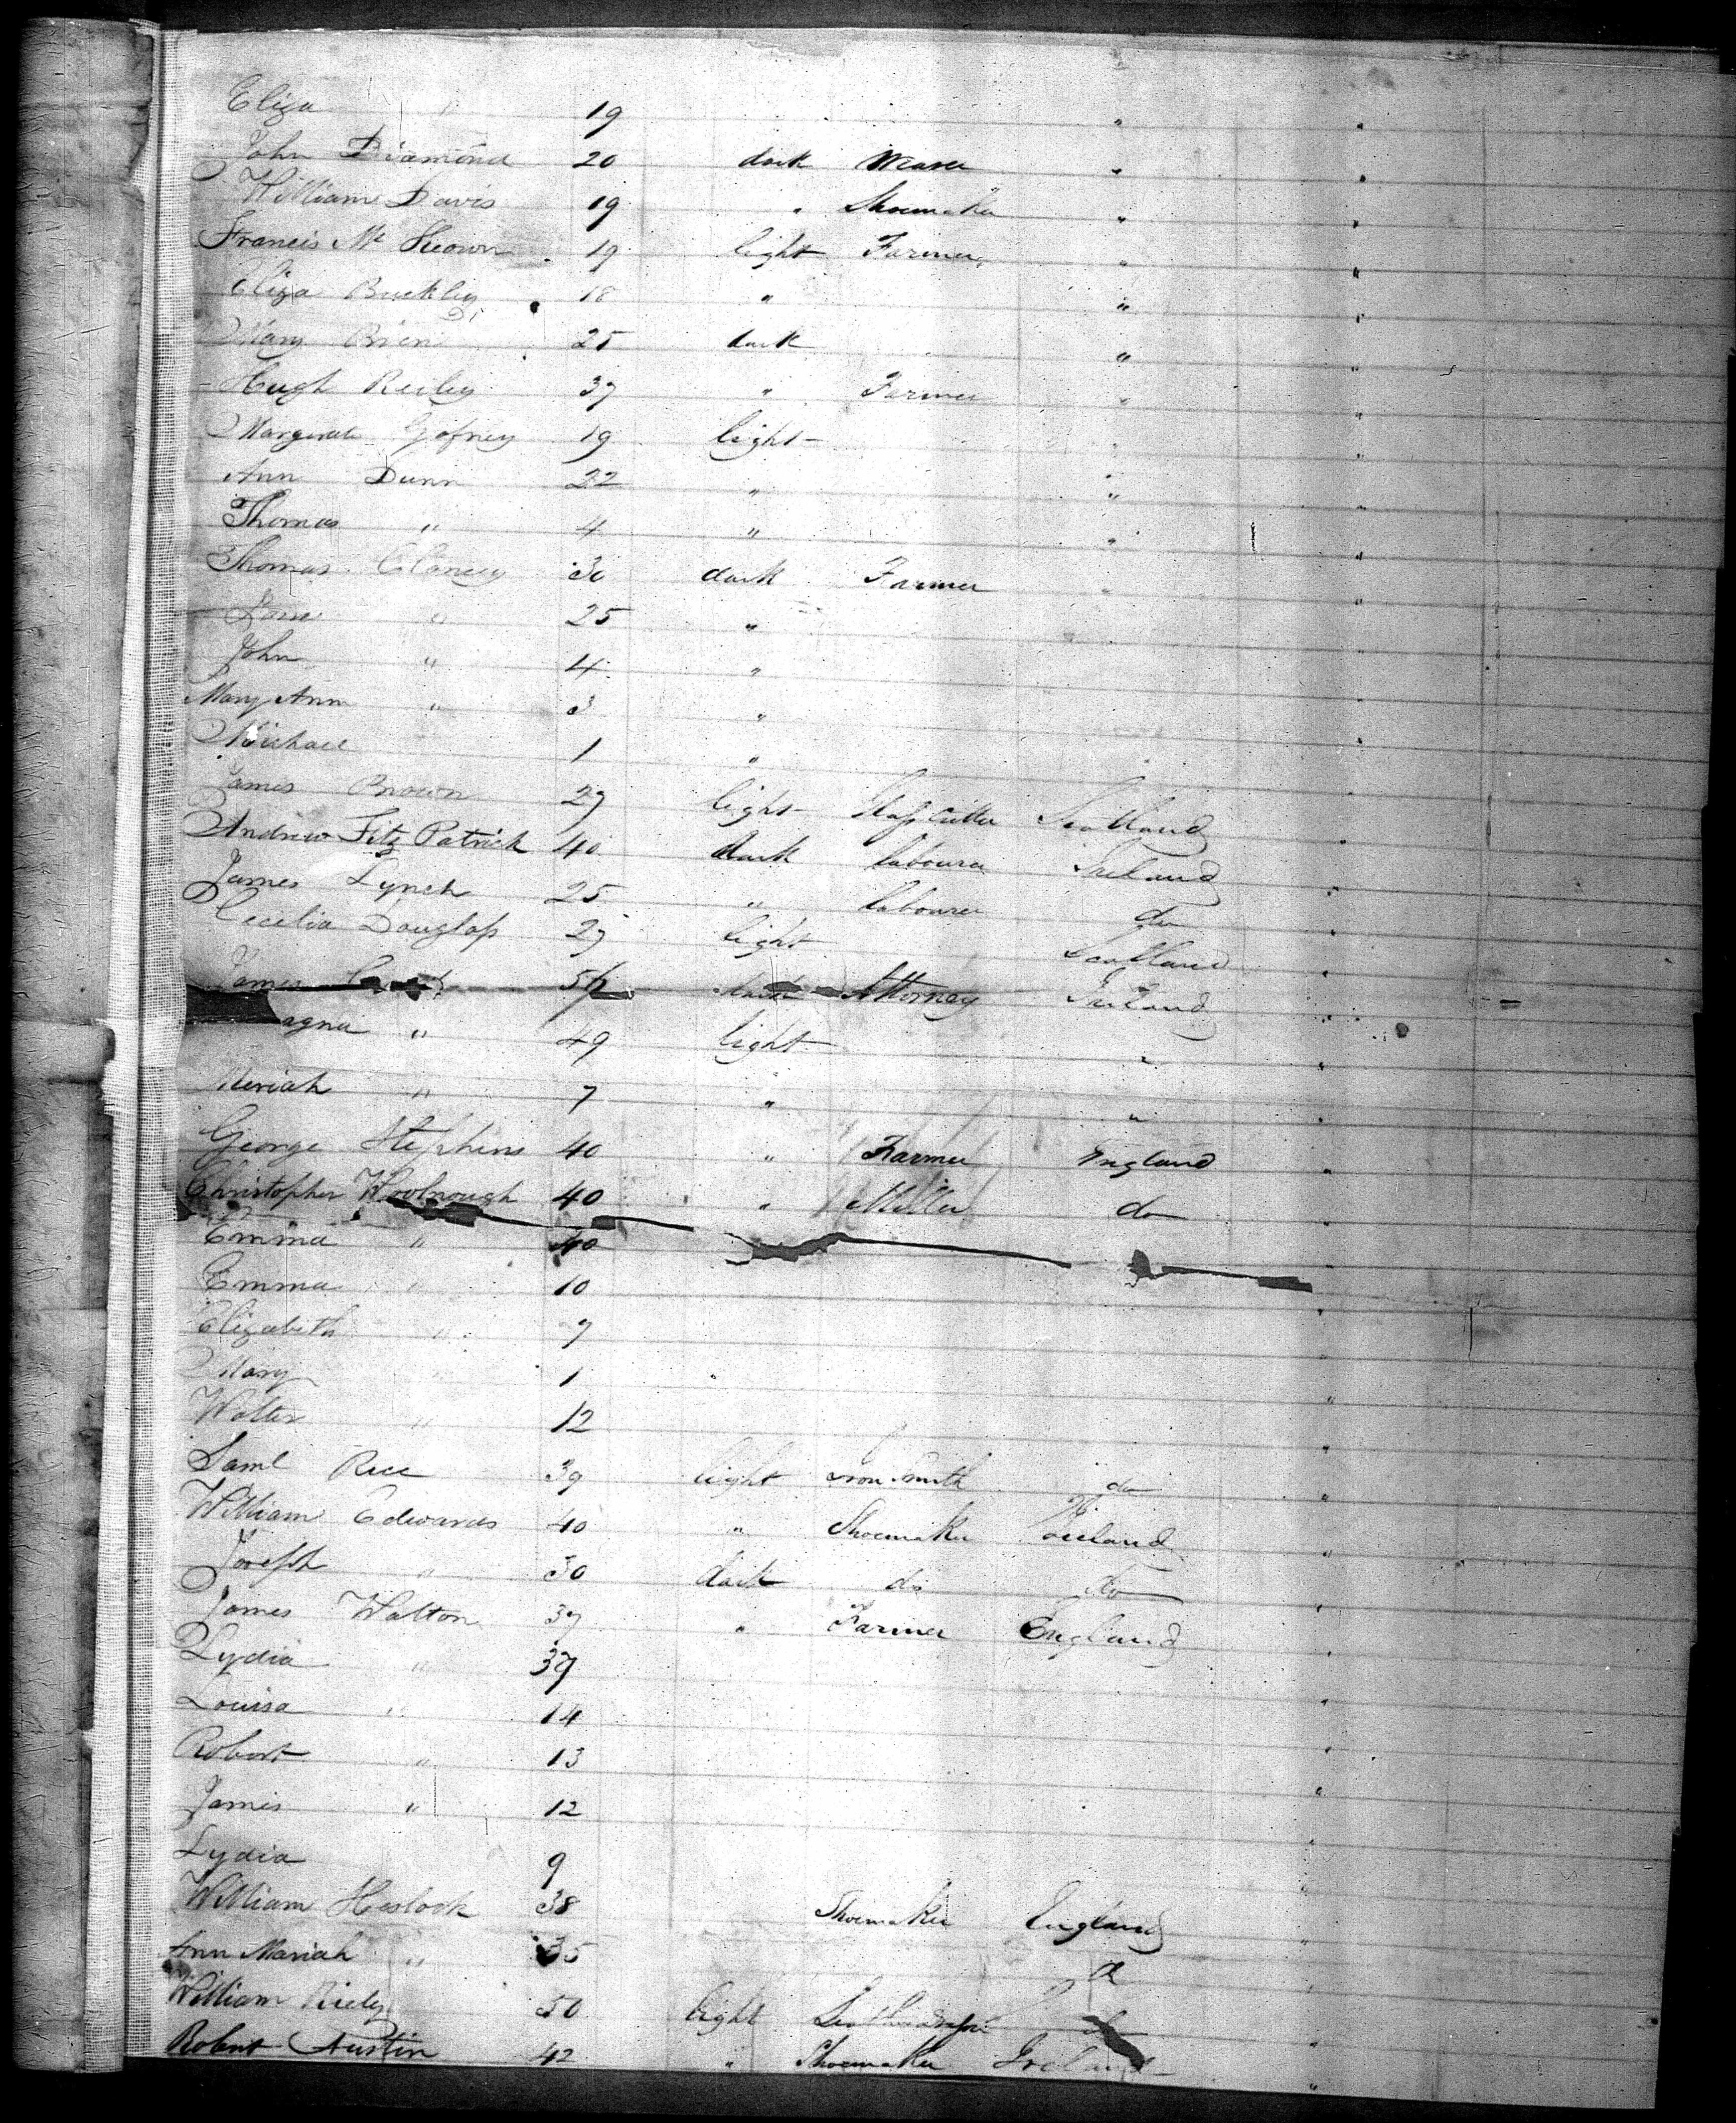 Eliza " 19 " "
John Diamond 20 dark Weaver " "
William Davis 19 " Shoemaker " "
Francis Mc Keown 19 light Farmer " "
Eliza Buckley 18 " " "
Mary Brien 25 dark " "
Hugh Reiley 37 " Farmer " "
Margerate Gofney 19 light " "
Ann Dunn 22 " " "
Thomas " 4 " " "
Thomas Clancey 30 dark Farmer " "
Jane " 25 "
John " 4 " "
Mary Ann " 3 " "
Michael 1 " "
James Brown 27 light Glass Cutter Scotland "
Andrew Fitz Patrick 40 dark labourer Ireland "
James Lynch 25 " labourer do "
Cecelia Douglass 27 light Scotland "
James dark Attorney Ireland "
agna " 49 light " "
Meriah " 7 " " "
George Stephens 40 " Farmer England "
Christopher Woolnough 40 " Miller do "
Emma " 40 "
Emma " 10 "
Elizabeth " 7 "
Mary " 1 "
Walter " 12 "
Saml Rice 39 light Iron Smith do "
William Edwards 40 " Shoemaker Ireland "
Joseph " 30 dark do do "
James Walton 37 " Farmer England "
Lydia " 39 "
Louisa " 14 "
Robert " 13 "
James " 12 "
Lydia 9 "
William Heslock 38 Shoemaker England "
Ann Mariah " 35 do "
William Riely 50 light "
Robert Austin 42 " Shoemaker Ireland "